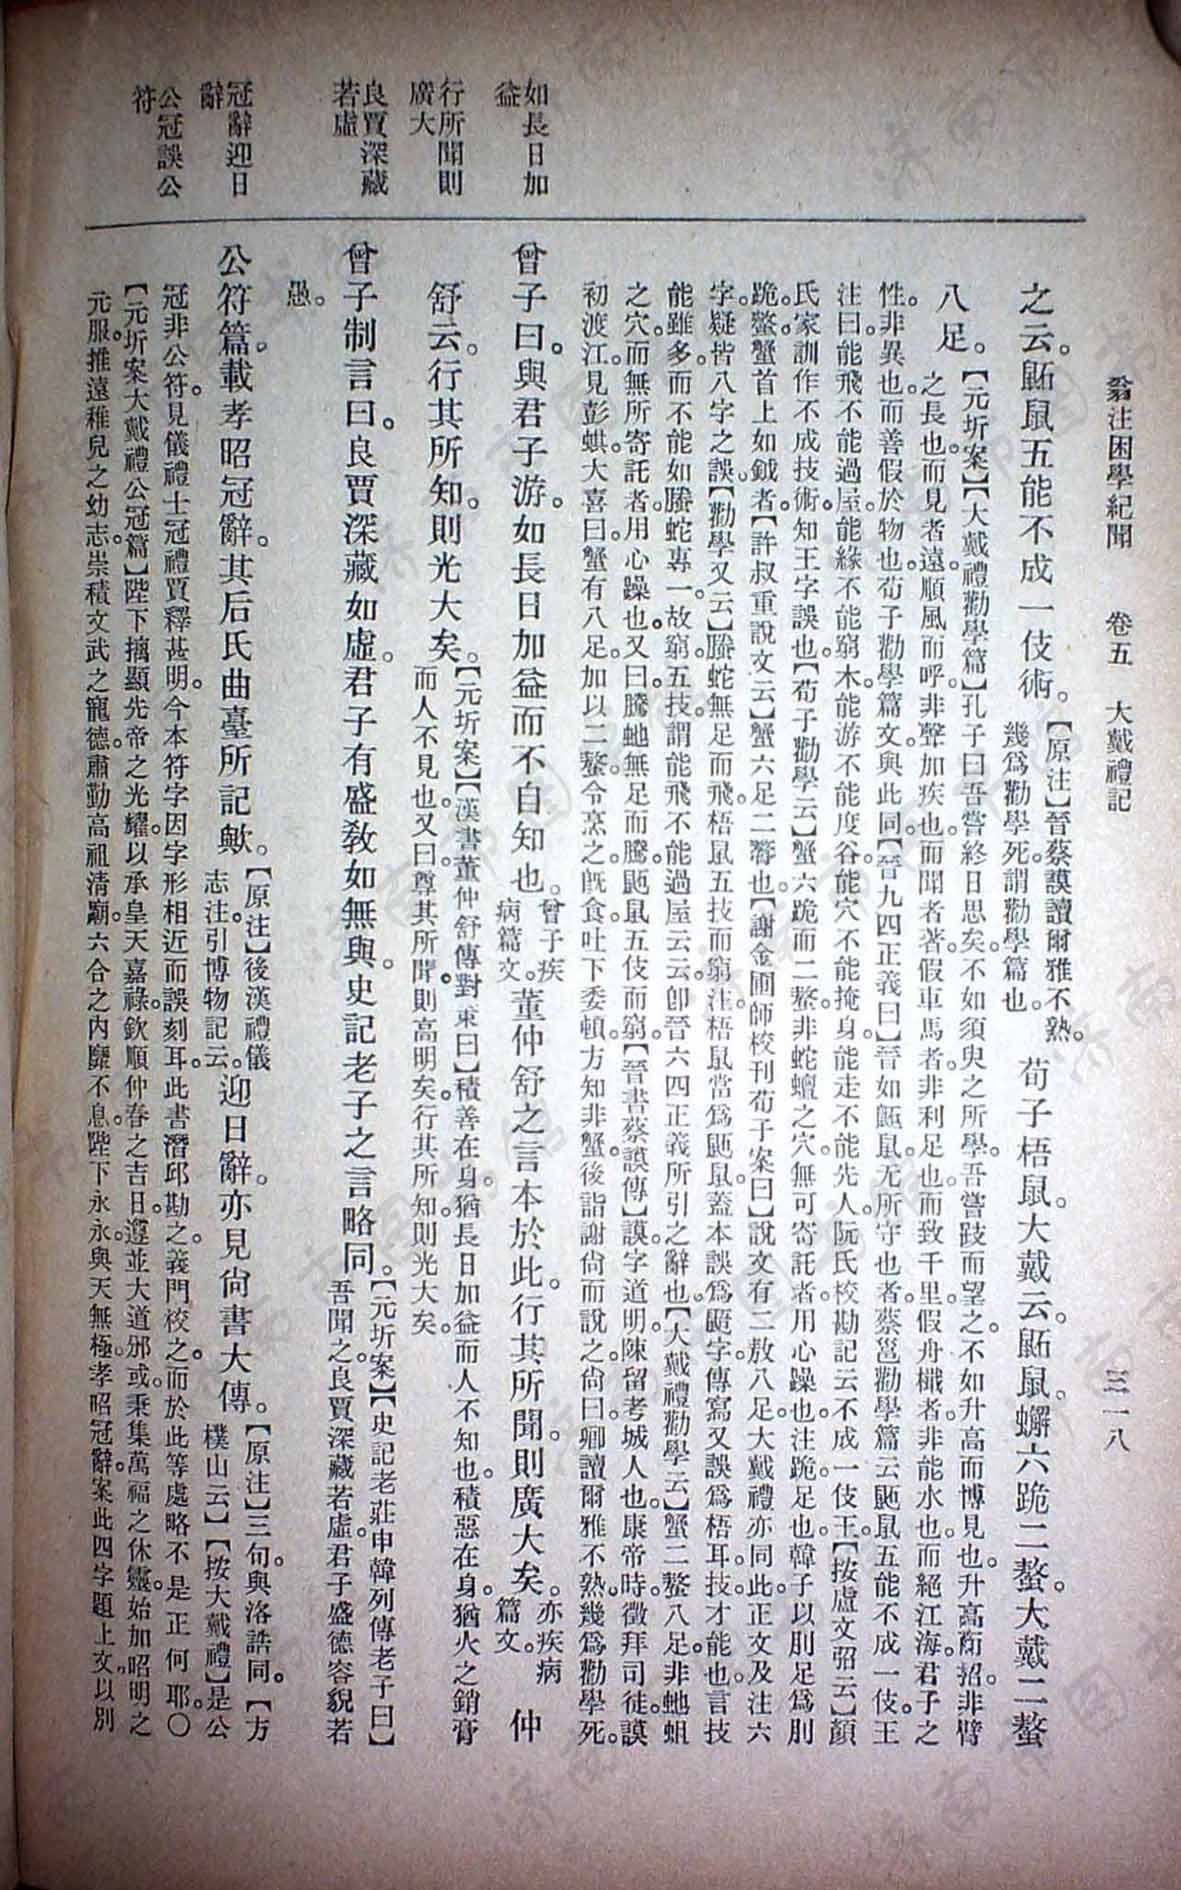 翁注困學紀聞　卷五　大戴禮記　三一八
如長日加
益
行所聞則
廣大
良賈深藏
若虛
冠辭迎日
辭
公冠誤公
符
之云。鼫鼠五能不成一伎術。【原注】晉蔡謨讀爾雅不熟。幾爲勸學死。謂勸學篇也。荀子梧鼠。大戴云。鼫鼠。蟹六跪二螯。大戴二螯
八足。【元圻案】【大戴禮勸學篇】孔子曰。吾嘗終日思矣。不如須臾之所學。吾嘗跂而望之。不如升高而博見也。升高而招。非臂
之長也。而見者遠。順風而呼。非聲加疾也。而聞者著。假車馬者。非利足也。而致千里。假舟檝者。非能水也。而絕江海。君子之
性。非異也。而善假於物也。荀子勸學篇文與此同。【晉九四正義曰】晉如鼫鼠。无所守也者。蔡邕勸學篇云。鼫鼠五能不成一伎。王
注曰。能飛不能過屋。能緣不能窮木。能游不能度谷。能穴不能掩身。能走不能先人。阮氏校勘記云。不成一伎王。【按盧文弨云】顏
氏家訓作不成技術。知王字誤也。【荀子勸學云】蟹六跪而二螯。非蛇蟺之穴。無可寄託者。用心躁也。注。跪。足也。韓子以刖足爲刖
跪。螯。蟹首上如鉞者。【許叔重說文云】蟹六足二螯也。【謝金圃師校刊荀子案曰】說文有二敖八足。大戴禮亦同。此正文及注六
字。疑皆八字之誤。【勸學又云】螣蛇無足而飛。梧鼠五技而窮。注。梧鼠當爲鼫鼠。蓋本誤爲鼯字。傳寫又誤爲梧耳。技。才能也。言技
能雖多。而不能如螣蛇專一。故窮。五技。謂能飛不能過屋云云。卽晉六四正義所引之辭也。【大戴禮勸學云】蟹二螯八足。非虵蛆
之穴。而無所寄託者。用心躁也。又曰。騰虵無足而騰。鼫鼠五伎而窮。【晉書蔡謨傳】謨字道明。陳留考城人也。康帝時。徵拜司徒。謨
初渡江。見彭蜞。大喜曰。蟹有八足。加以二螯。令烹之。旣食。吐下委頓。方知非蟹。後詣謝尙而說之。尙曰。卿讀爾雅不熟。幾爲勸學死。
曾子曰。與君子游。如長日加益而不自知也。曾子疾病篇文。董仲舒之言本於此。行其所聞。則廣大矣。亦疾病篇文。仲
舒云。行其所知。則光大矣。【元圻案】【漢書董仲舒傳對策曰】積善在身。猶長日加益。而人不知也。積惡在身。猶火之銷膏
而人不見也。又曰。尊其所聞。則高明矣。行其所知。則光大矣。
曾子制言曰。良賈深藏如虛。君子有盛敎如無。與史記老子之言略同。【元圻案】【史記老莊申韓列傳老子曰】
吾聞之。良賈深藏若虛。君子盛德容貌若
愚。
公符篇。載孝昭冠辭。其后氏曲臺所記歟。【原注】後漢禮儀志注。引博物記云。迎日辭。亦見尙書大傳。【原注】三句。與洛誥同。【方樸山云】【按大戴禮】是公
冠非公符。見儀禮士冠禮賈釋甚明。今本符字因字形相近而誤刻耳。此書潛邱勘之。義門校之。而於此等處略不是正何耶。〇
【元圻案大戴禮公冠篇】陛下摛顯先帝之光耀。以承皇天嘉祿。欽順仲春之吉日。遵並大道邠或。秉集萬福之休靈。始加昭明之
元服。推遠稚兒之幼志。崇積文武之寵德。肅勤高祖清廟。六合之內。靡不息。陛下永永。與天無極。孝昭冠辭。案此四字題上文以別